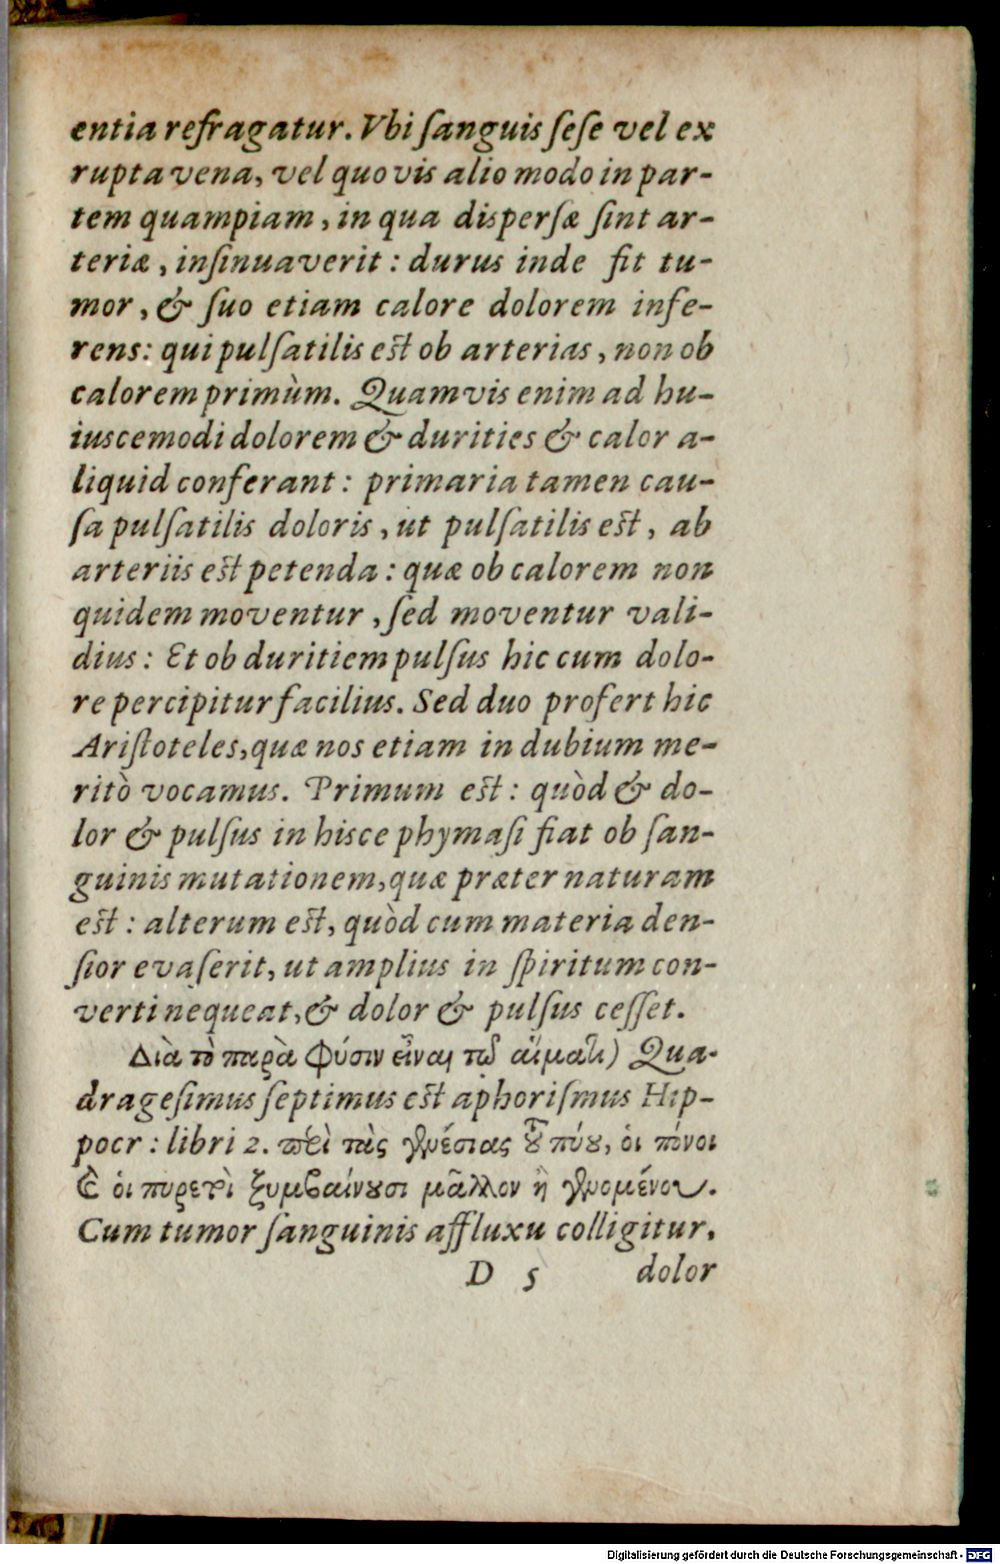 entia refragatur. Vbi ſanguis ſeſe vel ex
rupta vena, vel quovis alio modo in par-
tem quampiam, in qua disperſæ ſint ar-
teriæ, inſinuaverit: durus inde fit tu-
mor, & ſuo etiam calore dolorem infe-
rens: qui pulſatilis est ob arterias, non ob
calorem primùm. Quamvis enim ad hu-
iuscemodi dolorem & durities & calor a-
liquid conferant: primaria tamen cau-
ſa pulſatilis doloris, ut pulſatilis est, ab
arteriis est petenda: quæ ob calorem non
quidem moventur, ſed moventur vali-
dius: Et ob duritiem pulſus hic cum dolo-
re percipitur facilius. Sed duo profert hic
Ariſtoteles, quæ nos etiam in dubium me-
ritò vocamus. Primum est: quòd & do-
lor & pulſus in hisce phymaſi fiat ob ſan-
guinis mutationem, quæ præter naturam
est: alterum est, quòd cum materia den-
ſior evaſerit, ut amplius in ſpiritum con-
verti nequeat, & dolor & pulſus ceſſet.
Διὰ τὸ παρὰ φύσιν εἶναι τῷ αἵματι) Qua-
drageſimus ſeptimus est aphoriſmus Hip-
pocr: libri 2. περὶ τὰς γενέσιας τοῦ πύου, οἱ πόνοι
καὶ οἱ πυρετοὶ ξυμβαίνουσι μᾶλλον ἢ γενομένου.
Cum tumor ſanguinis affluxu colligitur,
D 5 dolor
Digitalisierung gefördert durch die Deutsche Forschungsgemeinschaft - DFG